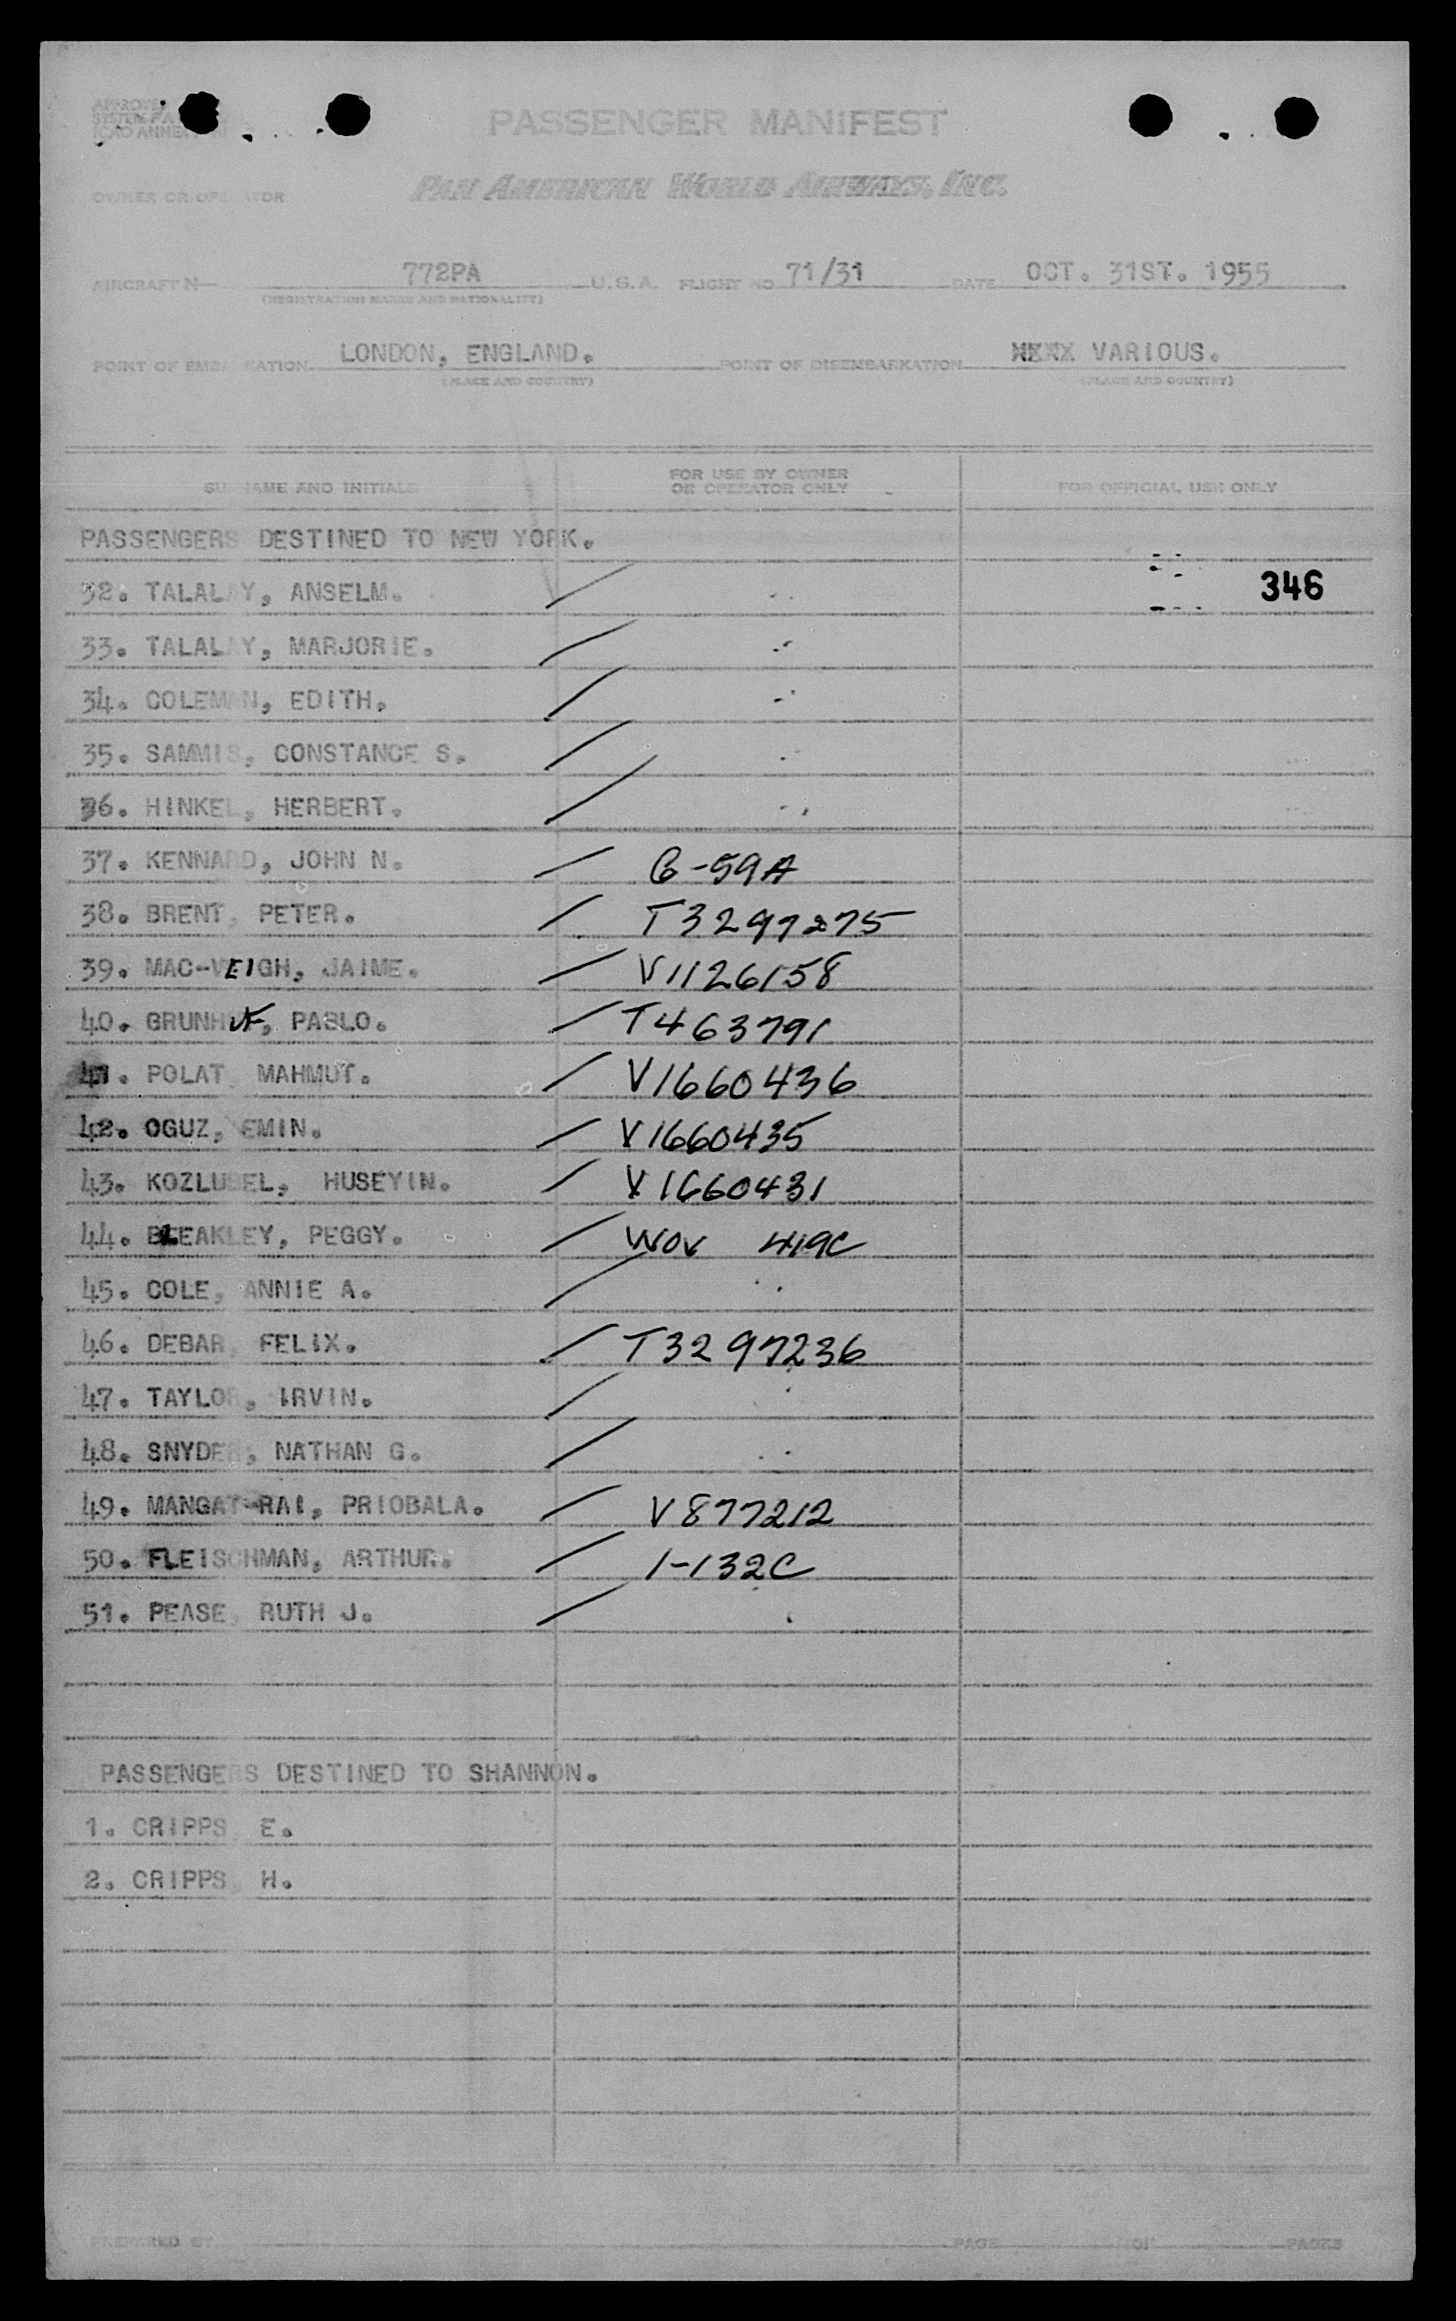 PASSENGER MANIFEST
OWNER OR OPERATOR
PAN AMERICAN WORLD AIRWAYS, INC.
AIRCRAFT N— 772PA U.S.A. FLIGHT NO 71/31 DATE OCT. 31ST. 1955
(REGISTRATION MARKS AND NATIONALITY)
POINT OF EMBARKATION LONDON, ENGLAND. POINT OF DISEMBARKATION VARIOUS.
(PLACE AND COUNTRY) (PLACE AND COUNTRY)
SURNAME AND INITIALS FOR USE BY OWNER OR OPERATOR ONLY FOR OFFICIAL USE ONLY
PASSENGERS DESTINED TO NEW YORK.
32. TALALAY, ANSELM. / 346
33. TALALAY, MARJORIE. /
34. COLEMAN, EDITH. /
35. SAMMIS, CONSTANCE S. /
36. HINKEL, HERBERT. /
37. KENNARD, JOHN N. / G-59A
38. BRENT, PETER. / T3297275
39. MAC-VEIGH, JAIME. / V1126158
40. GRUNHUF, PABLO. / T463791
41. POLAT, MAHMUT. / V1660436
42. OGUZ, EMIN. / V1660435
43. KOZLUSEL, HUSEYIN. / V1660431
44. BLEAKLEY, PEGGY. / WOV 419C
45. COLE, ANNIE A. /
46. DEBAR, FELIX. / T3297236
47. TAYLOR, IRVIN. /
48. SNYDER, NATHAN G. /
49. MANGAT-RAI, PRIOBALA. / V877212
50. FLEISCHMAN, ARTHUR. / 1-132C
51. PEASE, RUTH J. /
PASSENGERS DESTINED TO SHANNON.
1. CRIPPS, E.
2. CRIPPS, H.
PREPARED BY PAGE OF PAGES